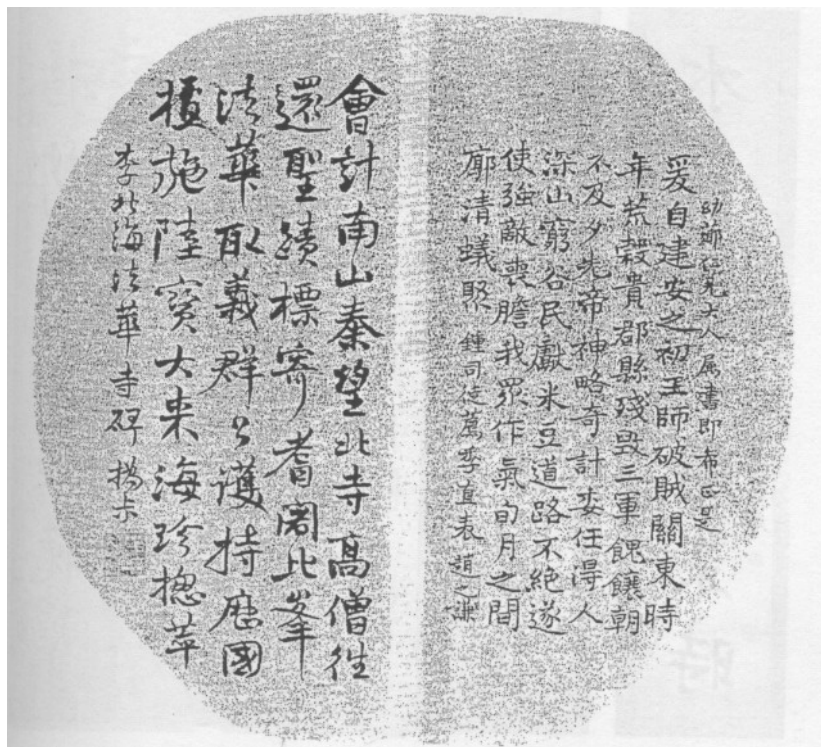 幼節仁兄大人属書即希正是
爰自建安之初王師破賊關東時
年荒穀貴郡縣殘毀三軍餽饟朝
不及夕先帝神略奇計委任得人
深山窮谷民獻米豆道路不絕遂
使強敵喪膽我眾作氣旬月之間
廓清蟻聚 鍾司徒薦季直表 趙之謙
會計南山秦望北寺高僧往
還聖蹟標寄耆闍比峯
法華取義群公護持歷國
檀施陸寶大来海珍摠萃
李北海法華寺碑 撝尗